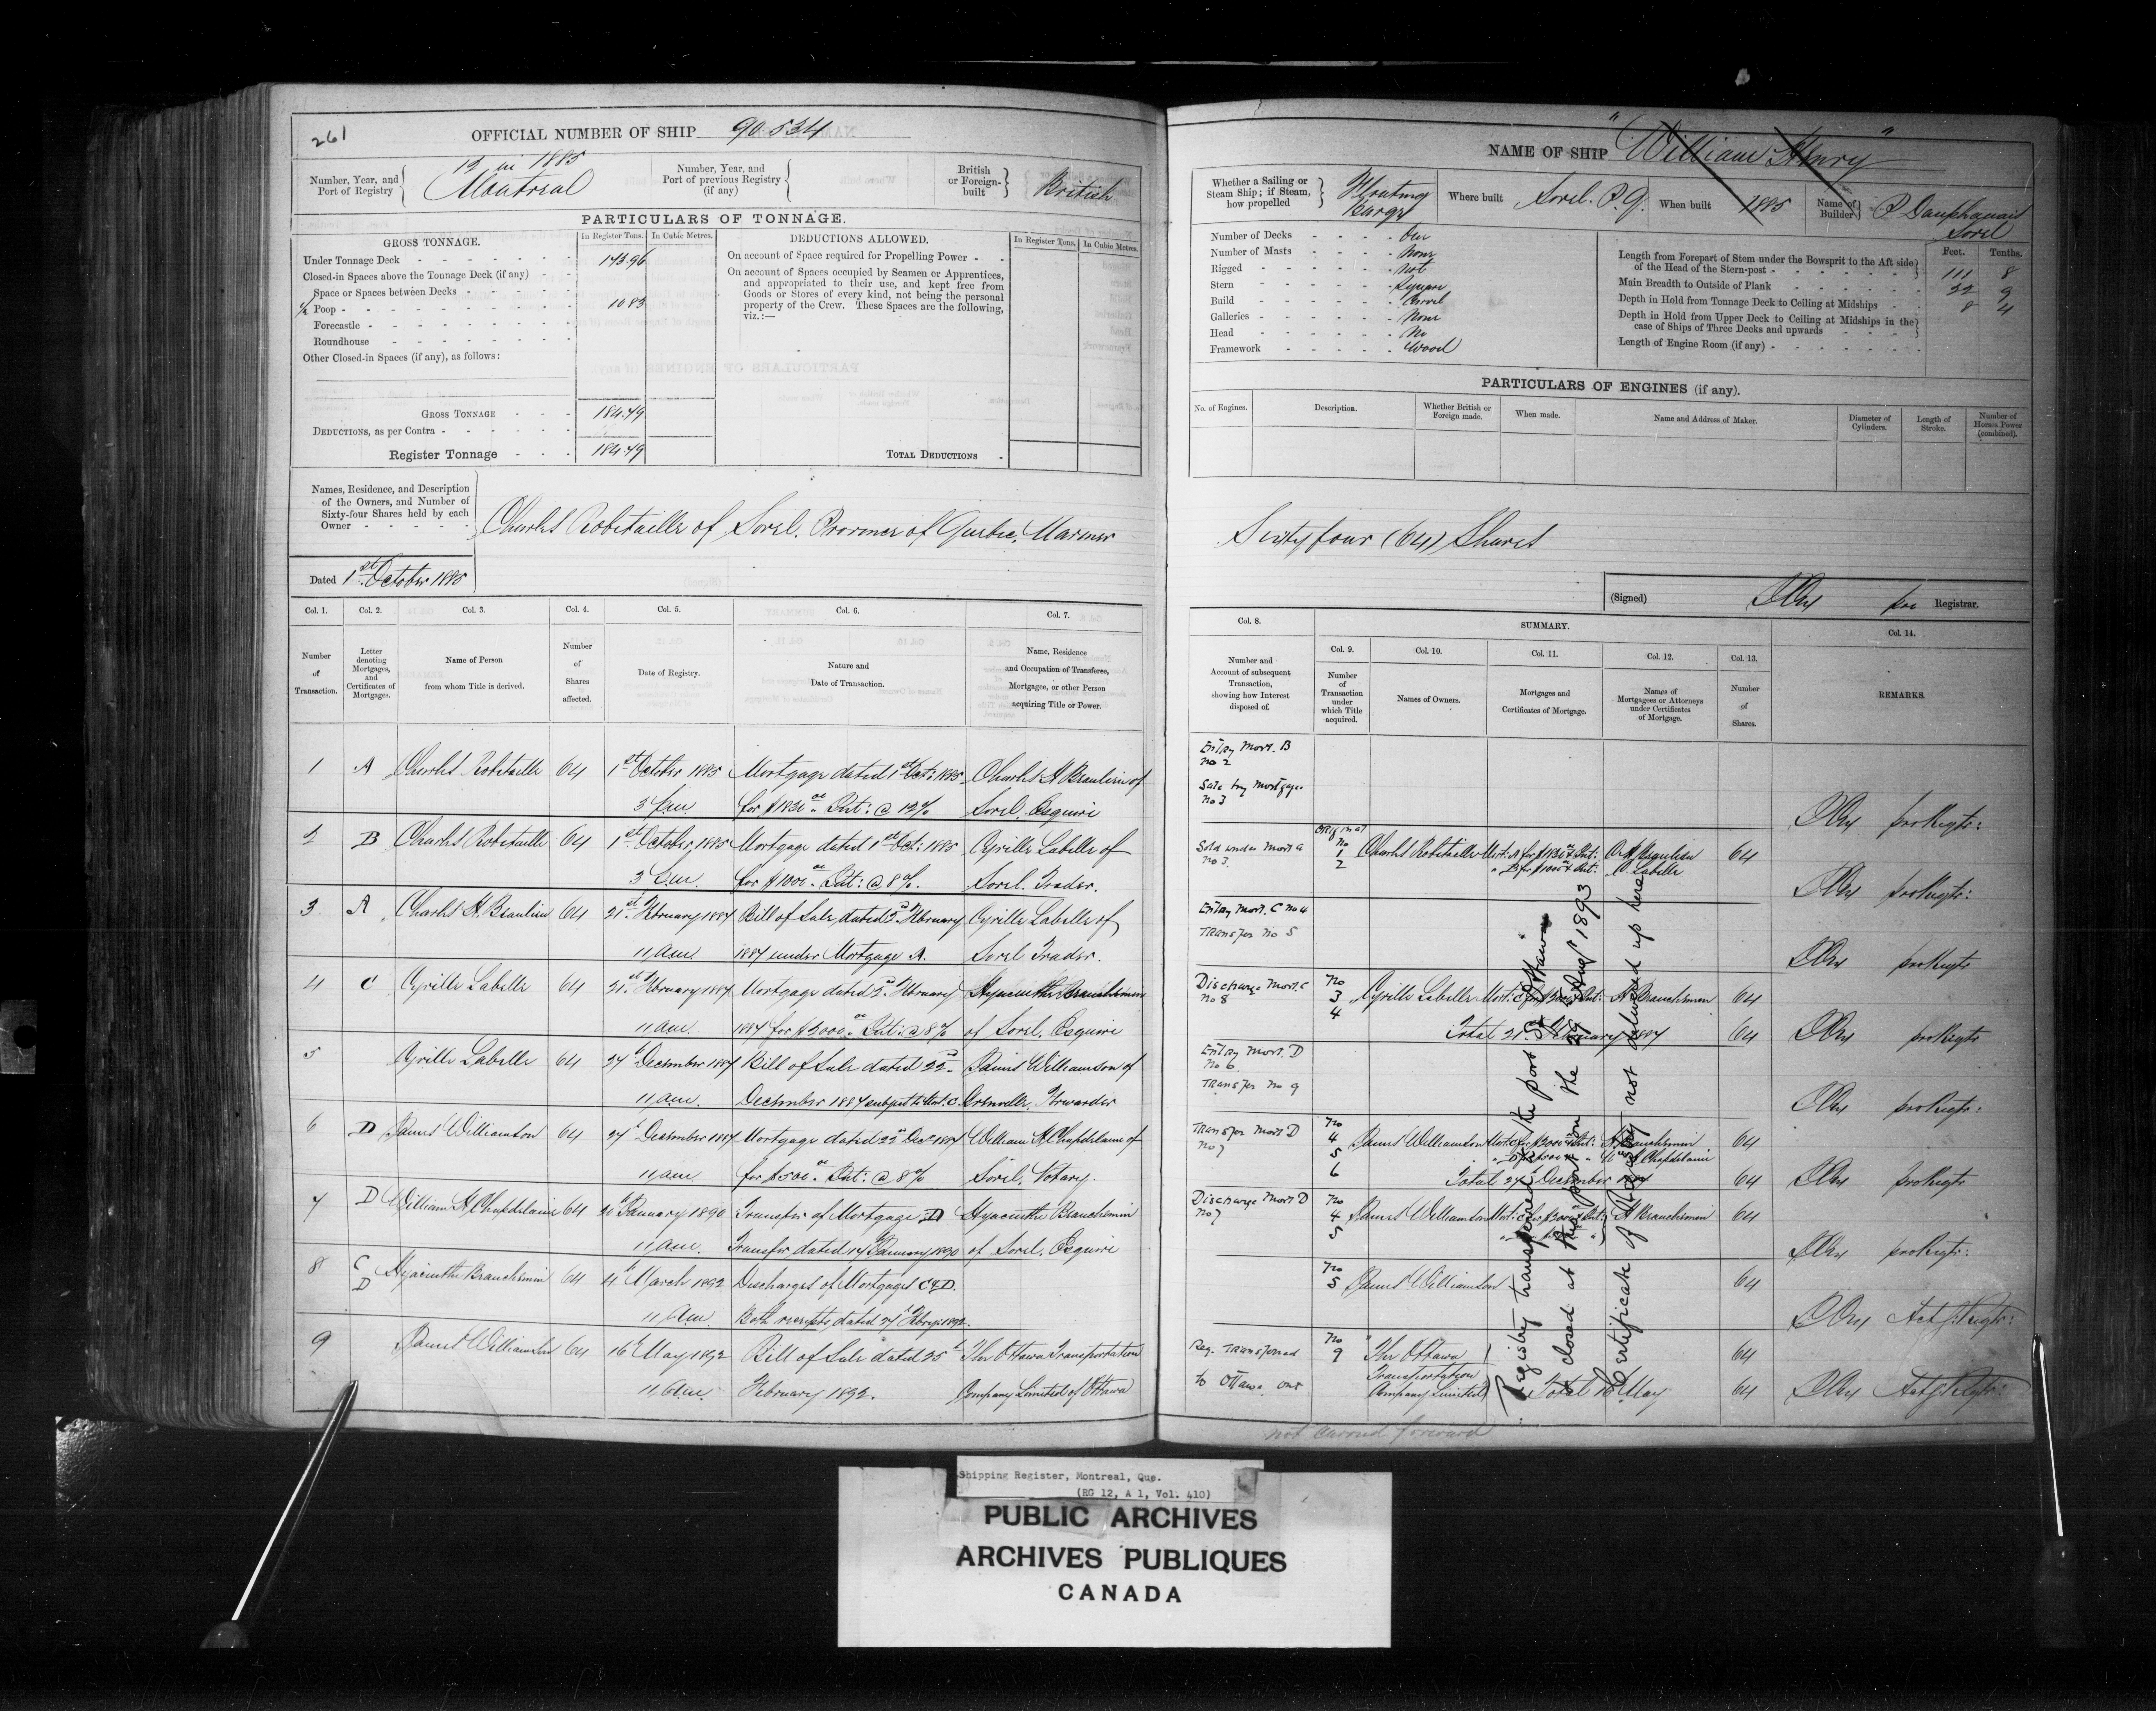 261
OFFICIAL NUMBER OF SHIP 90.534
Number, Year, and
Port of Registry
12 in 1885
Montreal
Number, Year, and
Port of previous Registry
(if any)
British
or Foreign-
built
British
PARTICULARS OF TONNAGE.
GROSS TONNAGE.
In Register Tons.
In Cubic Metres.
DEDUCTIONS ALLOWED.
In Register Tons.
In Cubic Metres.
Under Tonnage Deck
Closed-in Spaces above the Tonnage Deck (if any)
Space or Spaces between Decks
Poop 10.83
Forecastle
Roundhouse
Other Closed-in Spaces (if any), as follows:
GROSS TONNAGE
DEDUCTIONS, as per Contra
Register Tonnage
On account of Space required for Propelling Power
On account of Spaces occupied by Seamen or Apprentices,
and appropriated to their use, and kept free from
Goods or Stores of every kind, not being the personal
property of the Crew. These Spaces are the following,
viz.:—
TOTAL DEDUCTIONS
Names, Residence, and Description
of the Owners, and Number of
Sixty-four Shares held by each
Owner
Charles Robitaille of Sorel, Province of Quebec, Mariner
Dated 1st October 1885
Col. 1.
Number
of
Transaction.
Col. 2.
Letter
denoting
Mortgages,
and
Certificates of
Mortgages.
Col. 3.
Name of Person
from whom Title is derived.
Col. 4.
Number
of
Shares
affected.
Col. 5.
Date of Registry.
Col. 6.
Nature and
Date of Transaction.
Col. 7.
Name, Residence
and Occupation of Transferee,
Mortgagee, or other Person
acquiring Title or Power.
1 A Charles Robitaille 64 1st October 1885 Mortgage dated 1st Oct: 1885 Charles H Beaulieu of
3 p.m. Int: @ 12% Sorel, Esquire
2 B Charles Robitaille 64 1st October 1885 Mortgage dated 1st Oct: 1885 Cyrille Labelle of
3 p.m. for $1000 Int: @ 8%. Sorel. Trader.
3 A Charles H. Beaulieu 64 21st February 1887 Bill of Sale, dated 2nd February Cyrille Labelle of
11 am. 1887 under Mortgage A. Sorel Trader.
4 C Cyrille Labelle 64 21st February 1887 Mortgage dated 2nd February Hyacinthe Beauchemin
11 am. 1887 for $2000 Int: @ 8% of Sorel. Esquire
5 Cyrille Labelle 64 27th December 1887 Bill of Sale dated 22nd James Williamson of
11 am. December 1887 subject to Mort: C Grenville, Forwarder
6 D James Williamson 64 27th December 1887 Mortgage dated 22nd Decr 1887 William H Chapdelaine of
11 am. for $500 Int: @ 8% Sorel, Notary.
7 D William H Chapdelaine 64 20th January 1890 Transfer of Mortgage D Hyacinthe Beauchemin
11 am. Transfer dated 17th January 1890 of Sorel, Esquire
8 C D Hyacinthe Beauchemin 64 4th March 1892 Discharges of Mortgages C & D.
11 Am. Both receipts dated 27th Febry: 1892.
9 James Williamson 64 16th May 1892 Bill of Sale dated 25th The Ottawa Transportation
11 Am. February 1892. Company Limited of Ottawa
NAME OF SHIP "William Henry"
Whether a Sailing or
Steam Ship; if Steam,
how propelled
Floating
Barge
Where built Sorel. P.Q.
When built 1885
Name of
Builder
P Dauphanais
Sorel
Number of Decks One
Number of Masts None
Rigged Not
Stern Square
Build Carvel
Galleries None
Head No
Framework Wood
Feet. Tenths.
Length from Forepart of Stem under the Bowsprit to the Aft side
of the Head of the Stern-post 111 8
Main Breadth to Outside of Plank 22 9
Depth in Hold from Tonnage Deck to Ceiling at Midships 8 4
Depth in Hold from Upper Deck to Ceiling at Midships in the
case of Ships of Three Decks and upwards
Length of Engine Room (if any)
PARTICULARS OF ENGINES (if any).
No. of Engines.
Description.
Whether British or
Foreign made.
When made.
Name and Address of Maker.
Diameter of
Cylinders.
Length of
Stroke.
Number of
Horses Power
(combined).
Sixty four (64) Shares
(Signed) pro Registrar.
Col. 8.
Number and
Account of subsequent
Transaction,
showing how Interest
disposed of.
SUMMARY.
Col. 9.
Number
of
Transaction
under
which Title
acquired.
Col. 10.
Names of Owners.
Col. 11.
Mortgages and
Certificates of Mortgage.
Col. 12.
Names of
Mortgagees or Attorneys
under Certificates
of Mortgage.
Col. 13.
Number
of
Shares.
Col. 14.
REMARKS.
Entry Mort. B
No 2
Sale by Mortgagee
No 3
pro Regtr:
Sold under Mort A
No 3.
Original
No
1
2
Charles Robitaille
B for $1000 & Int:
C. H. Beaulieu
C. Labelle
64
pro Regtr:
Entry Mort. C No 4
Transfer No 5
pro Regtr
Discharge Mort. C
No 8
No
3
4
Cyrille Labelle Mort: C for $2000 & Int: H Beauchemin 64
Total 21st February 1887 64
pro Regtr
Entry Mort. D
No 6
Transfer No 9
pro Regtr:
Transfer Mort D
No 7
No
4
5
6
James Williamson Mort: C for $2000 & Int: H Beauchemin 64
D for $500 Wm H Chapdelaine
Total 27th December 1887 64
pro Regtr
Discharge Mort D
No 7
No
4
5
James Williamson Mort: C for $2000 & Int: H Beauchemin 64
pro Regtr:
No
5
James Williamson 64
Actg: Regtr:
Reg. Transferred
to Ottawa. Ont
No
9
The Ottawa
Transportation
Company Limited
64
Total 16 May 64
Actg: Regtr:
Registry transferred to the port of Ottawa
& closed at this port on the 29 Aug 1893
Certificate of Registry not delivered up here
not carried forward
Shipping Register, Montreal, Que.
(RG 12, A 1, Vol. 410)
PUBLIC ARCHIVES
ARCHIVES PUBLIQUES
CANADA